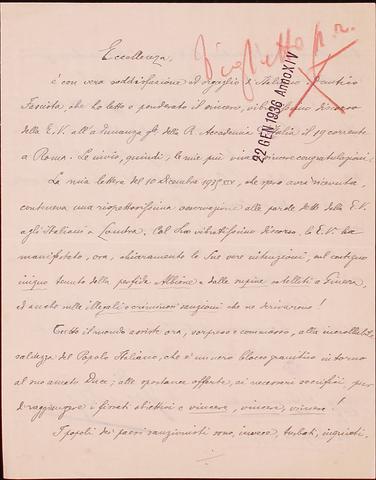 Eccellenza,
Biglietto p. r.
22 GEN 1936 Anno XIV
è con vera soddisfazione ed orgoglio d'Italiano e d'antico
Fascista, che ho letto e ponderato il sincero, discorso
della E.V. all'adunanza della R. Accademia d'Italia il 19 corrente
a Roma. Le invio, quindi, le mie più vive e sincere congratulazioni!
La mia lettera del 10 dicembre 1935 XIV, che spero avrà ricevuta,
conteneva una rispettosissima osservazione alle parole dette dalla E.V.
agli Italiani a Londra. Col Suo vibratissimo discorso, la E.V. ha
manifestato, ora, chiaramente le Sue vere intenzioni, sul contegno
iniquo tenuto dalla perfida Albione e dalle supine satelliti a Ginevra,
ed anche sulle illegali e criminose sanzioni che ne derivarono!
Tutto il mondo assiste ora, sorpreso e commosso, alla incrollabile
saldezza del Popolo Italiano, che è un vero blocco granitico intorno
al suo amato Duce; alle spontanee offerte, ai necessari sacrifici, per
raggiungere i fissati obiettivi e vincere, vincere, vincere!
I popoli dei paesi sanzionisti sono, invece, turbati, inquieti,